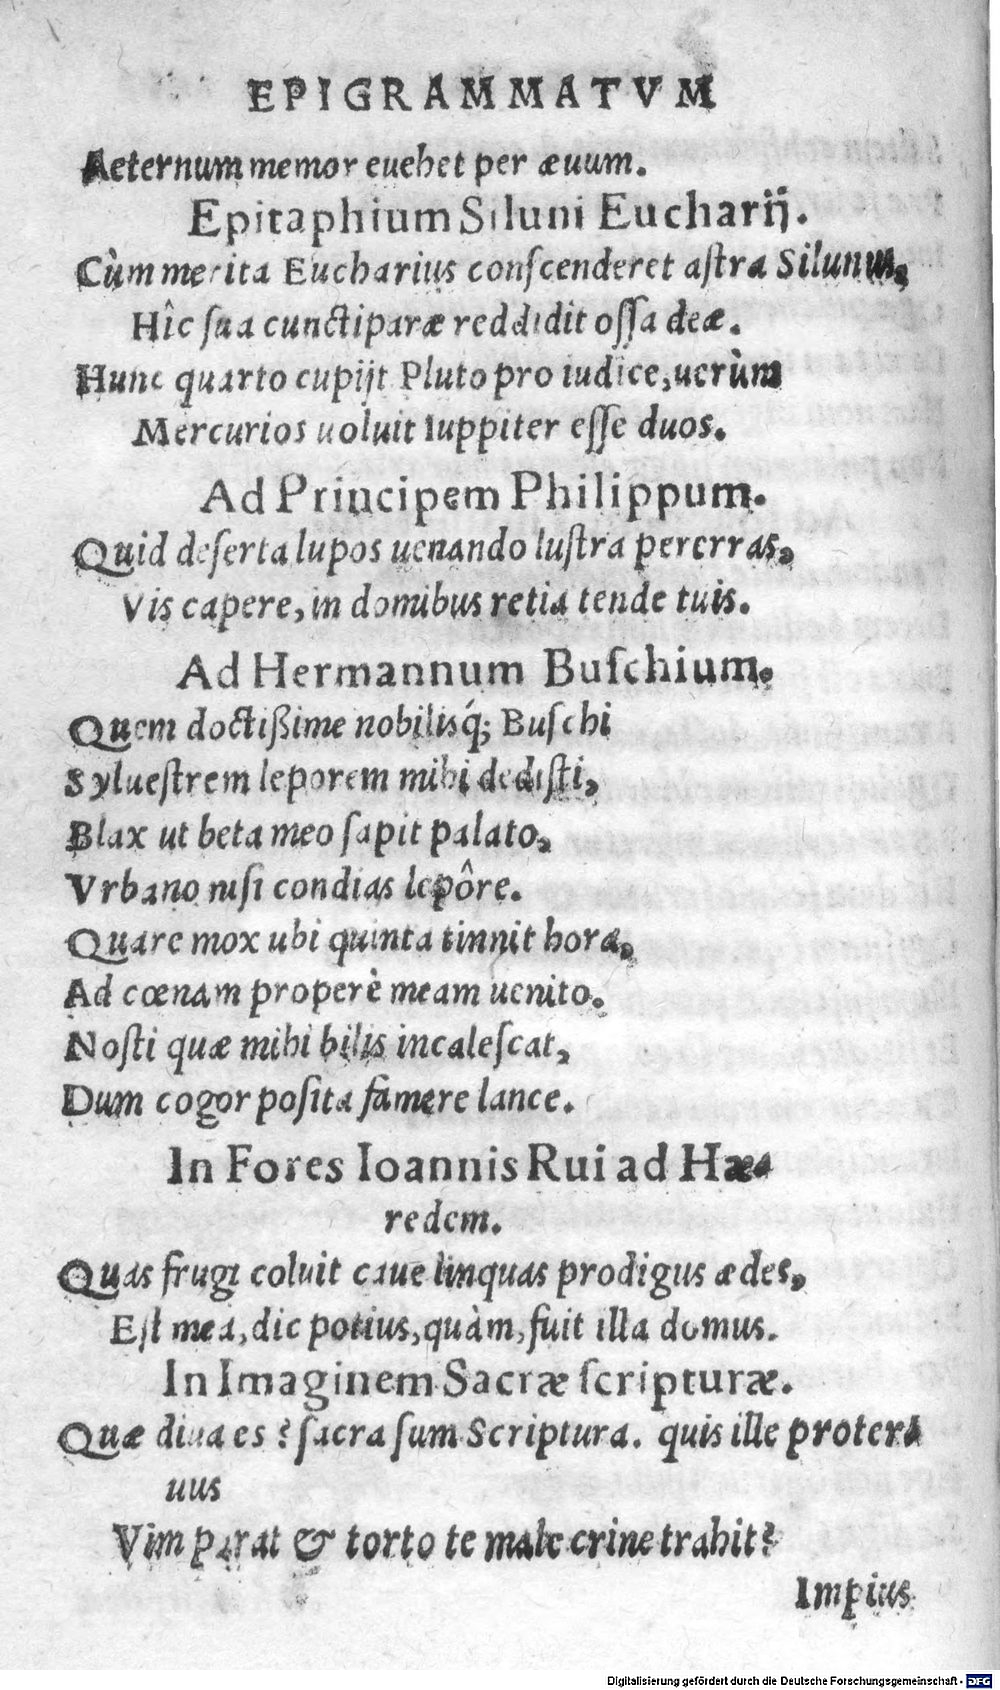 EPIGRAMMATVM
Aeternum memor euehet per æuum.
Epitaphium Siluni Eucharij.
Cùm merita Eucharius conscenderet astra Silunus,
Hîc sua cunctiparæ reddidit ossa deæ.
Hunc quarto cupijt Pluto pro iudice, uerùm
Mercurios uoluit Iuppiter esse duos.
Ad Principem Philippum.
Quid deserta lupos uenando lustra pererras,
Vis capere, in domibus retia tende tuis.
Ad Hermannum Buschium.
Quem doctißime nobilisq́; Buschi
Syluestrem leporem mihi dedisti,
Blax ut beta meo sapit palato,
Vrbano nisi condias lepôre.
Quare mox ubi quinta tinnit hora,
Ad cœnam properè meam uenito.
Nosti quæ mihi bilis incalescat,
Dum cogor posita famere lance.
In Fores Ioannis Rui ad Hæ-
redem.
Quas frugi coluit caue linquas prodigus ædes,
Est mea, dic potius, quàm, fuit illa domus.
In Imaginem Sacræ scripturæ.
Quæ diua es? sacra sum Scriptura. quis ille proter-
uus
Vim parat & torto te male crine trahit?
Impius
Digitalisierung gefördert durch die Deutsche Forschungsgemeinschaft - DFG